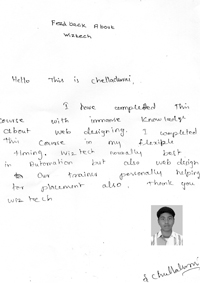 Feedback About
Wiztech
Hello This is chelladurai,
I have completed this
course with immense knowledge
about web designing. I completed
this course in my flexible
timing. Wiztech normally best
in Automation but also web design
Our trainer personally helping
for placement also. Thank you
Wiztech